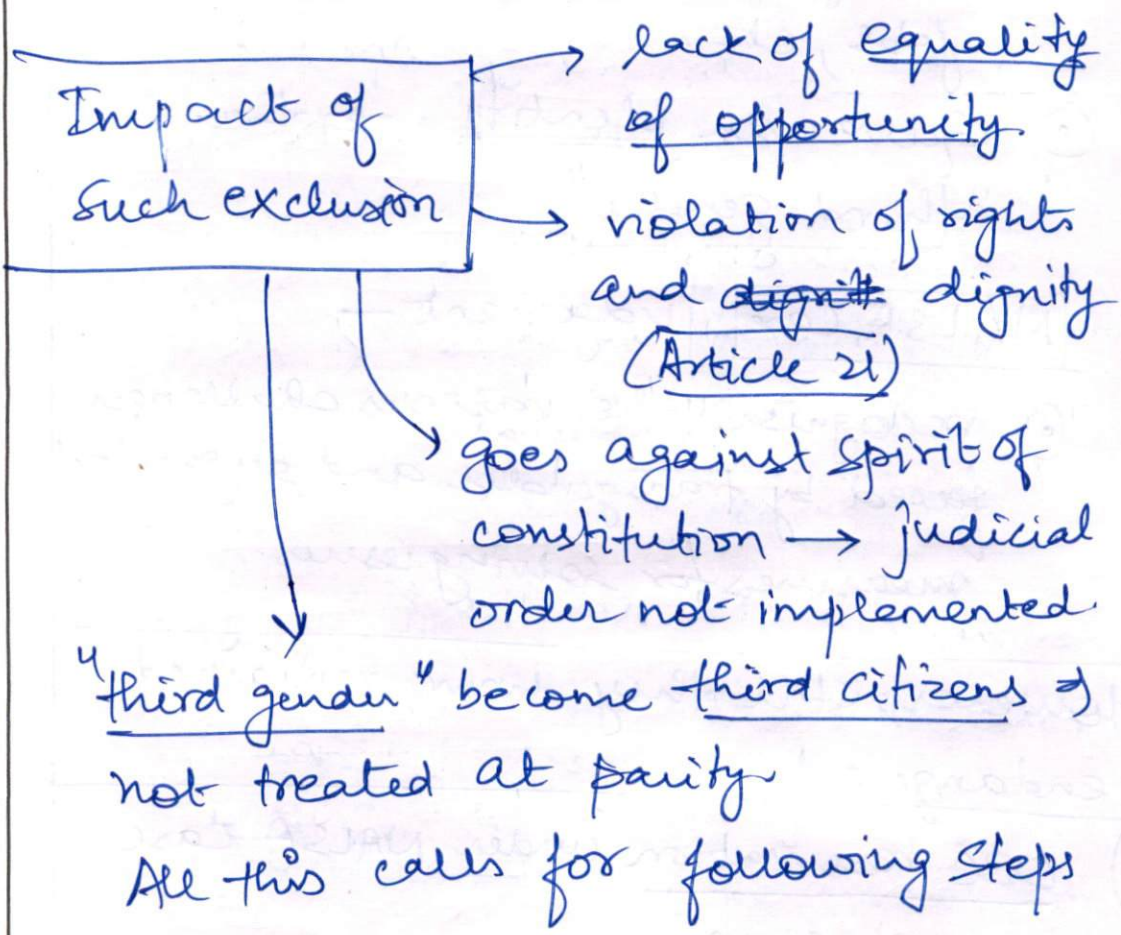 Impact of
Such exclusion
→ lack of equality
of opportunity.
→ violation of rights
and dignit dignity
(Article 21)
goes against spirit of
constitution → judicial
order not implemented.
"third gender" become third citizens &
not treated at parity
All this calls for following steps